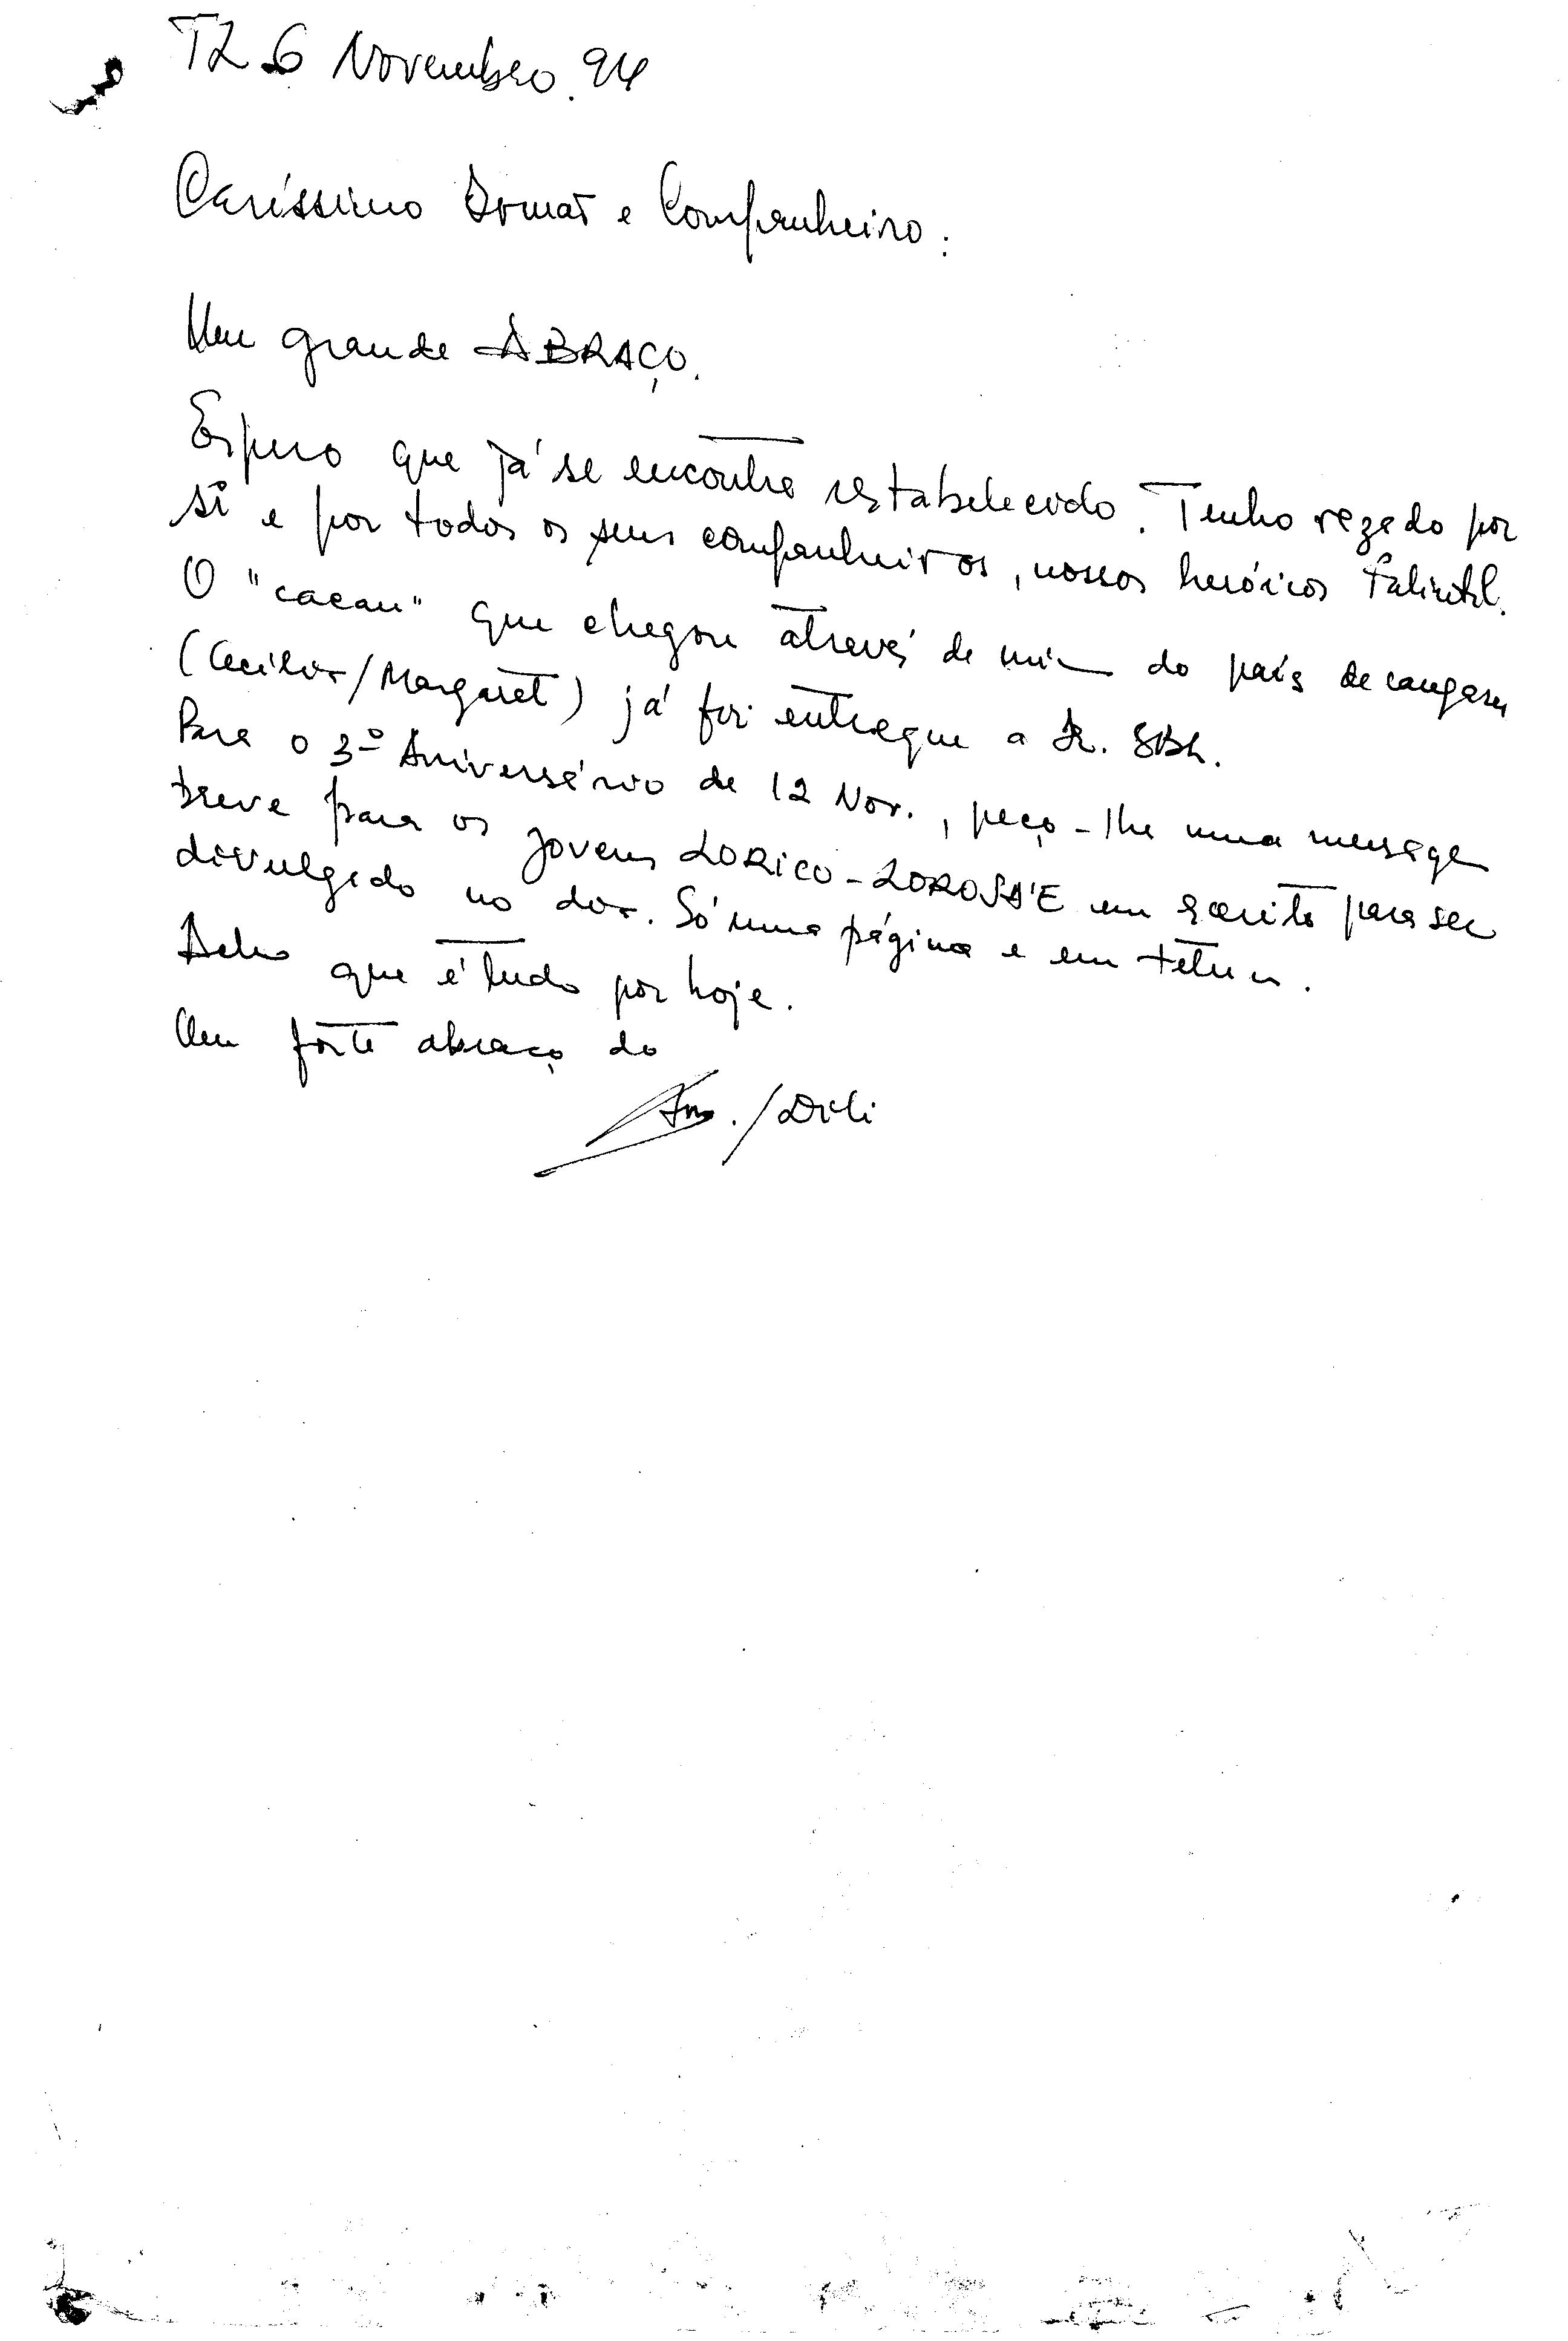 TL 6 Novembro. 94
Caríssimo Armat e Companheiro:
Um grande ABRAÇO.
Espero que já se encontre restabelecido. Tenho rezado por
si e por todos os seus companheiros, nossos heróicos Falintil.
O "cacau" que chegou através de mim do país de canguru
(Cecilia/Margaret) já foi entregue a R. SBL.
Para o 3º Aniversário de 12 Nov., peço-lhe uma mensagem
breve para os jovens LORICO-LOROSA'E em escrito para ser
divulgado no dia. Só uma página e em tetum.
Acho que é tudo por hoje.
Um forte abraço do
/Dili